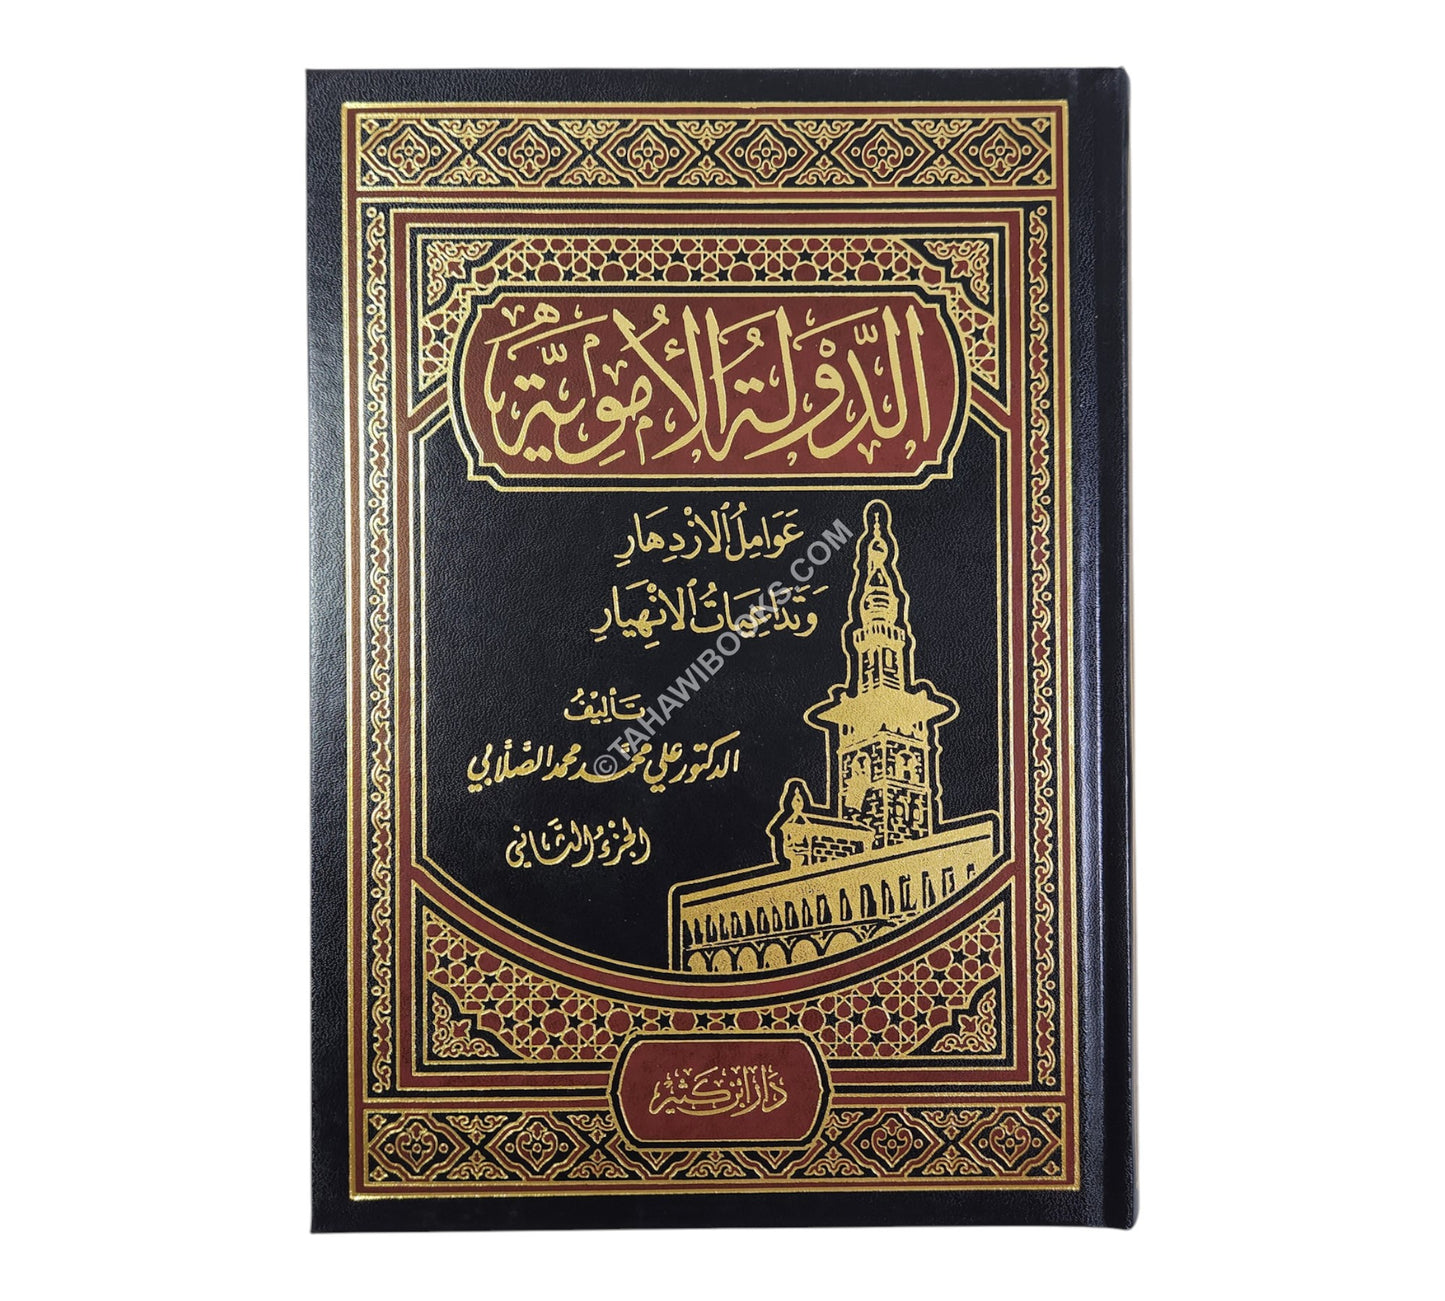 الدَّوْلَةُ الأُمَوِيَّة
عَوَامِلُ الازْدِهَارِ
وَتَدَاعِيَاتُ الانْهِيَارِ
تَأْلِيْفُ
الدكتور علي محمَّد محمد الصَّلَّابي
الجُزْءُ الثَّاني
دَار ابْن كَثِير
©TAHAWIBOOKS.COM